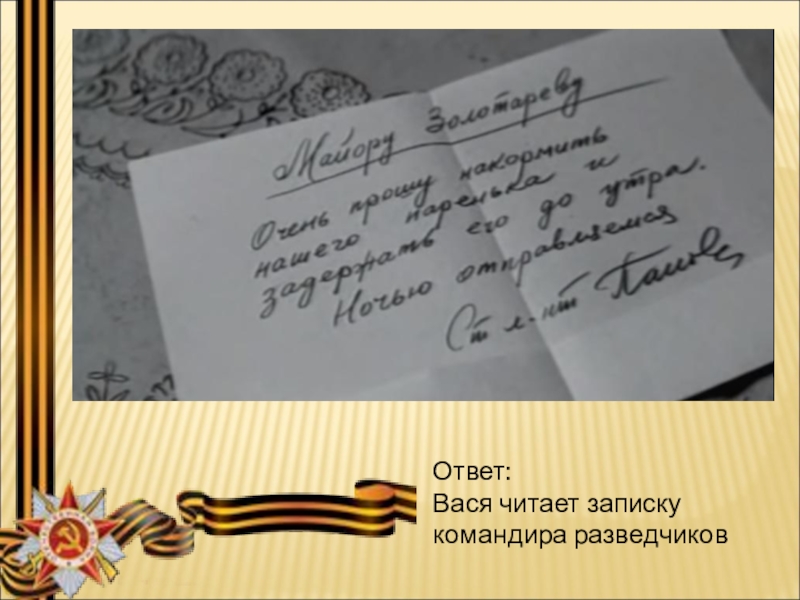 Майору Золотареву
Очень прошу накормить
нашего паренька и
задержать его до утра.
Ночью отправляемся
Ст л-нт
Ответ:
Вася читает записку
командира разведчиков